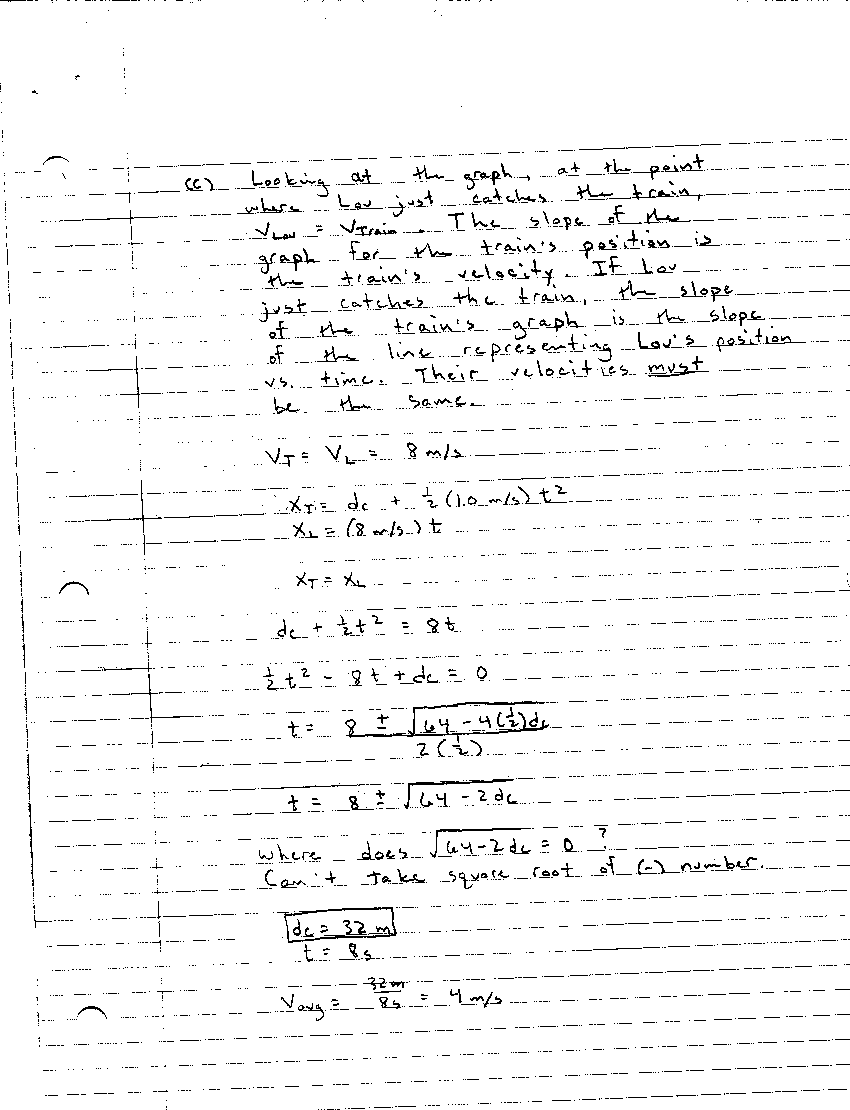 (c) Looking at the graph, at the point
where Lou just catches the train,
V_Lou = V_Train. The slope of the
graph for the train's position is
the train's velocity. If Lou
just catches the train, the slope
of the train's graph is the slope
of the line representing Lou's position
vs. time. Their velocities must
be the same.
V_T = V_L = 8 m/s
X_T = dc + ½ (1.0 m/s) t²
X_L = (8 m/s) t
X_T = X_L
dc + ½t² = 8t
½t² - 8t + dc = 0
t = (8 ± √(64 - 4(½)dc)) / 2(½)
t = 8 ± √(64 - 2dc)
where does √(64-2dc) = 0 ?
Can't take square root of (-) number.
dc = 32 m
t = 8s
V_avg = 32m/8s = 4 m/s